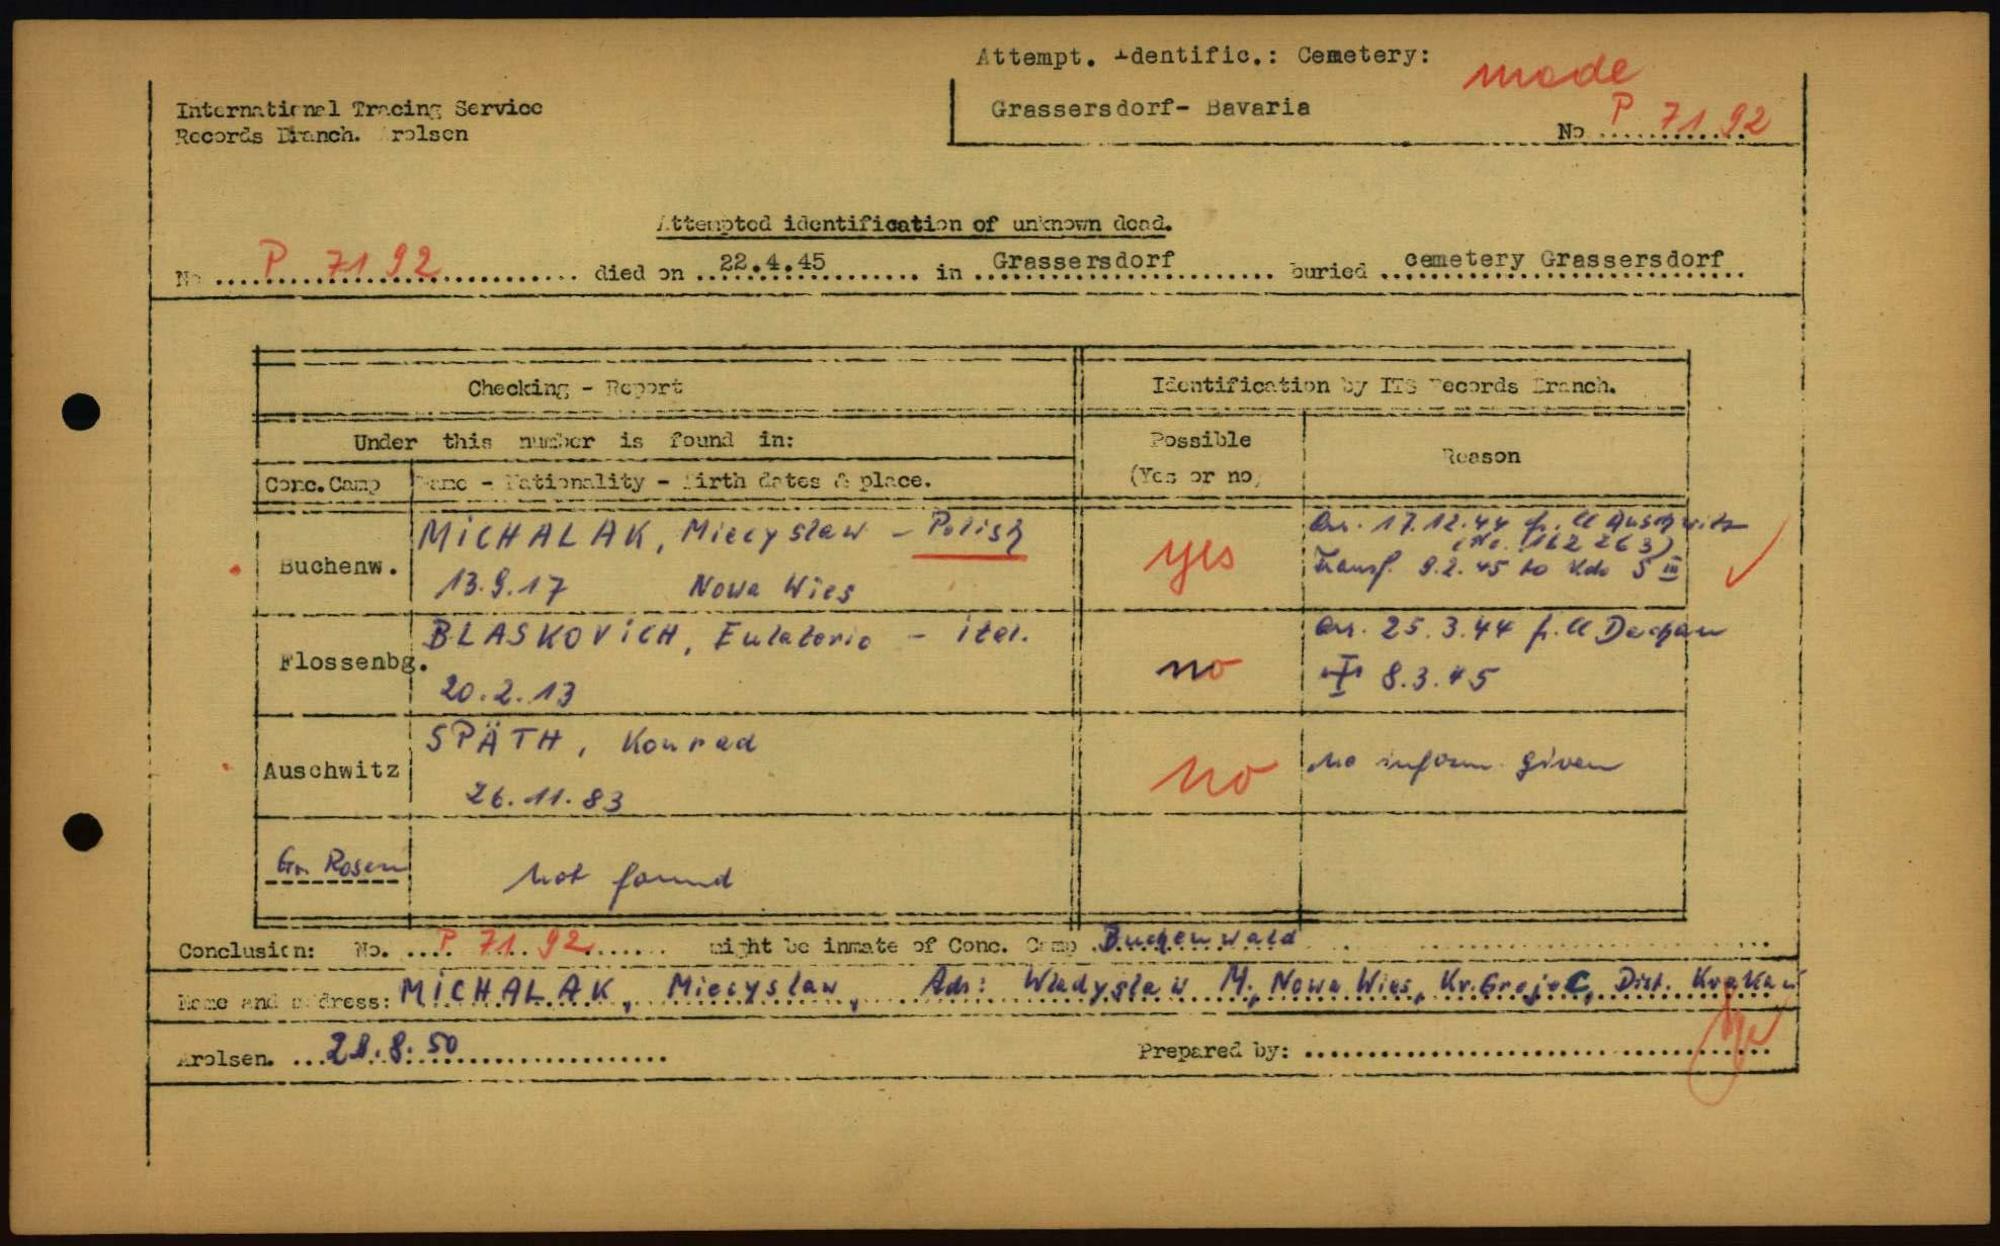 Attempt. Identific.: Cemetery:
made
Grassersdorf- Bavaria
No P 7192
International Tracing Service
Records Branch. Arolsen
Attempted identification of unknown dead.
No P 7192 died on 22.4.45 in Grassersdorf buried cemetery Grassersdorf
Checking - Report
Identification by ITS Records Branch.
Under this number is found in:
Possible
(Yes or no)
Reason
Conc.Camp
Name - Nationality - Birth dates & place.
Buchenw.
MICHALAK, Miecyslaw - Polish
13.9.17 Nowa Wies
yes
Arr. 17.12.44 fr. Cl Auschwitz
(No. 162 263)
Transf. 9.2.45 to Kdo S III
Flossenbg.
BLASKOVICH, Eulaterio - ital.
20.2.13
no
Arr. 25.3.44 fr. Cl Dachau
8.3.45
Auschwitz
SPÄTH, Konrad
26.11.83
no
No inform. given
Gr. Rosen
Not found
Conclusion: No. P 7192 might be inmate of Conc. Camp Buchenwald
Name and address: MICHALAK, Miecyslaw, Adr: Wladyslaw M., Nowa Wies, Kr. Grojec, Dist. Krakau
Arolsen. 28.8.50
Prepared by: